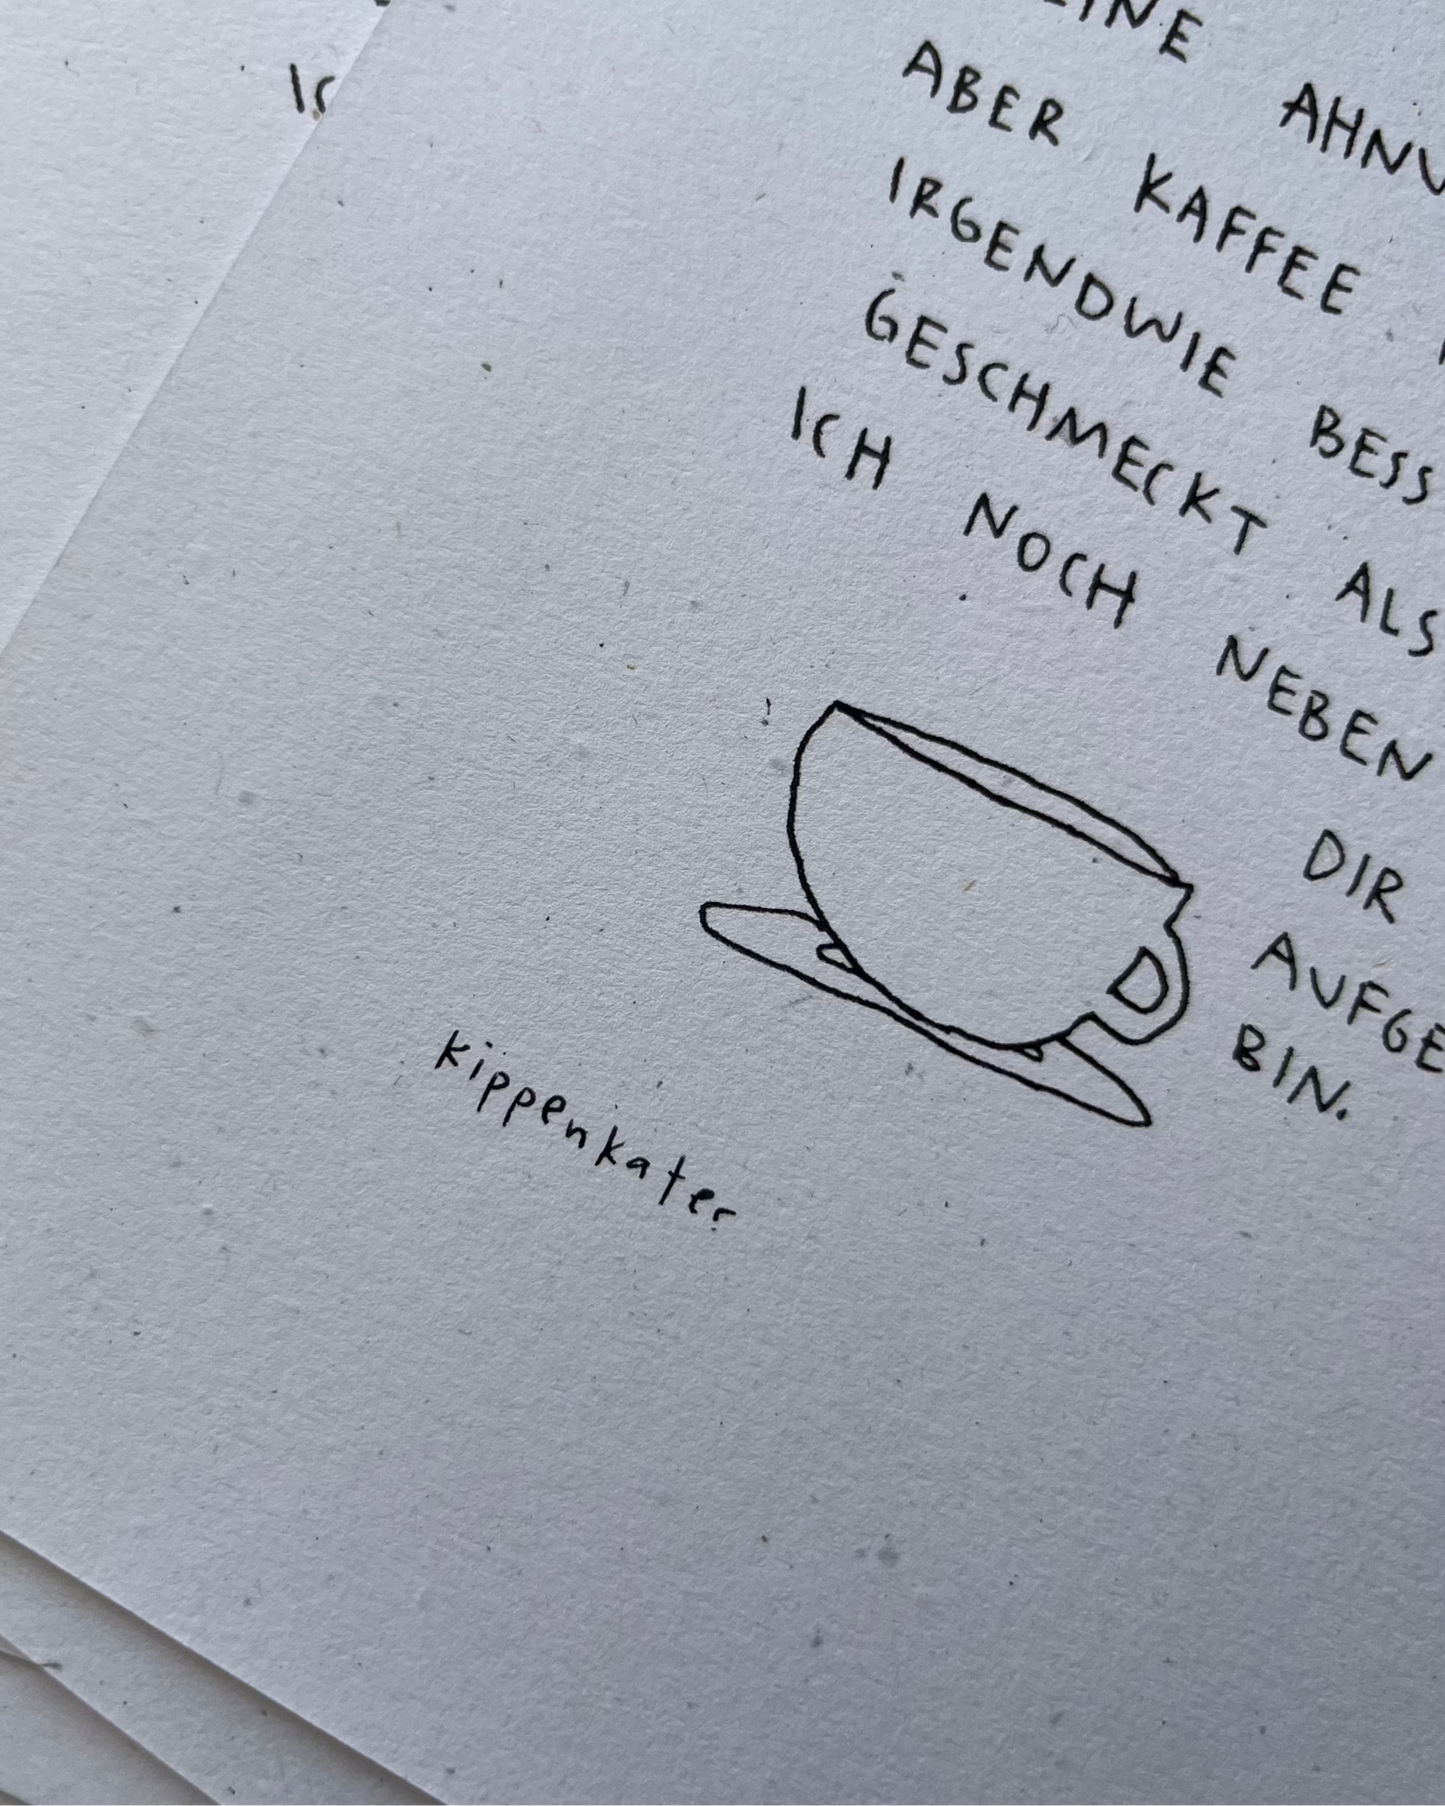 Ic
EINE AHNU
ABER KAFFEE
IRGENDWIE BESS
GESCHMECKT ALS
ICH NOCH NEBEN
DIR
AUFGE
BIN.
kippenkater